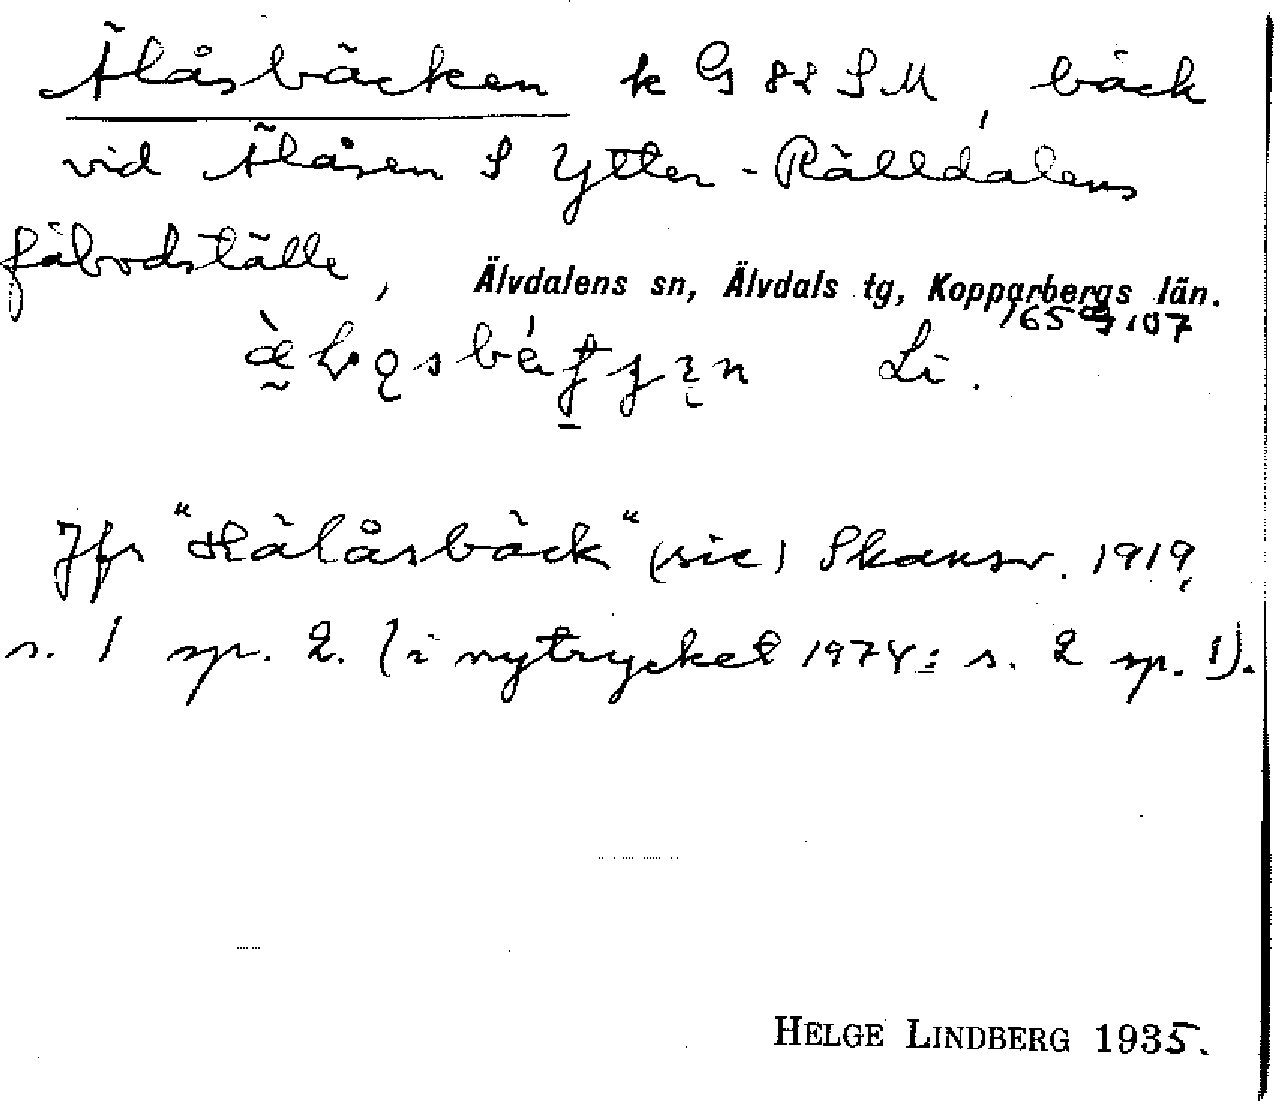 Älåsbäcken k G 82 SM, bäck
vid Älåsen S Ytter-Rälldalens
fäbodställe, Älvdalens sn, Älvdals tg, Kopparbergs län.
Li.
Jfr "Hälåsbäck" (sic) Skansv. 1919,
s. 1 sp. 2. (i nytrycket 1974: s. 2 sp. 1).
HELGE LINDBERG 1935.